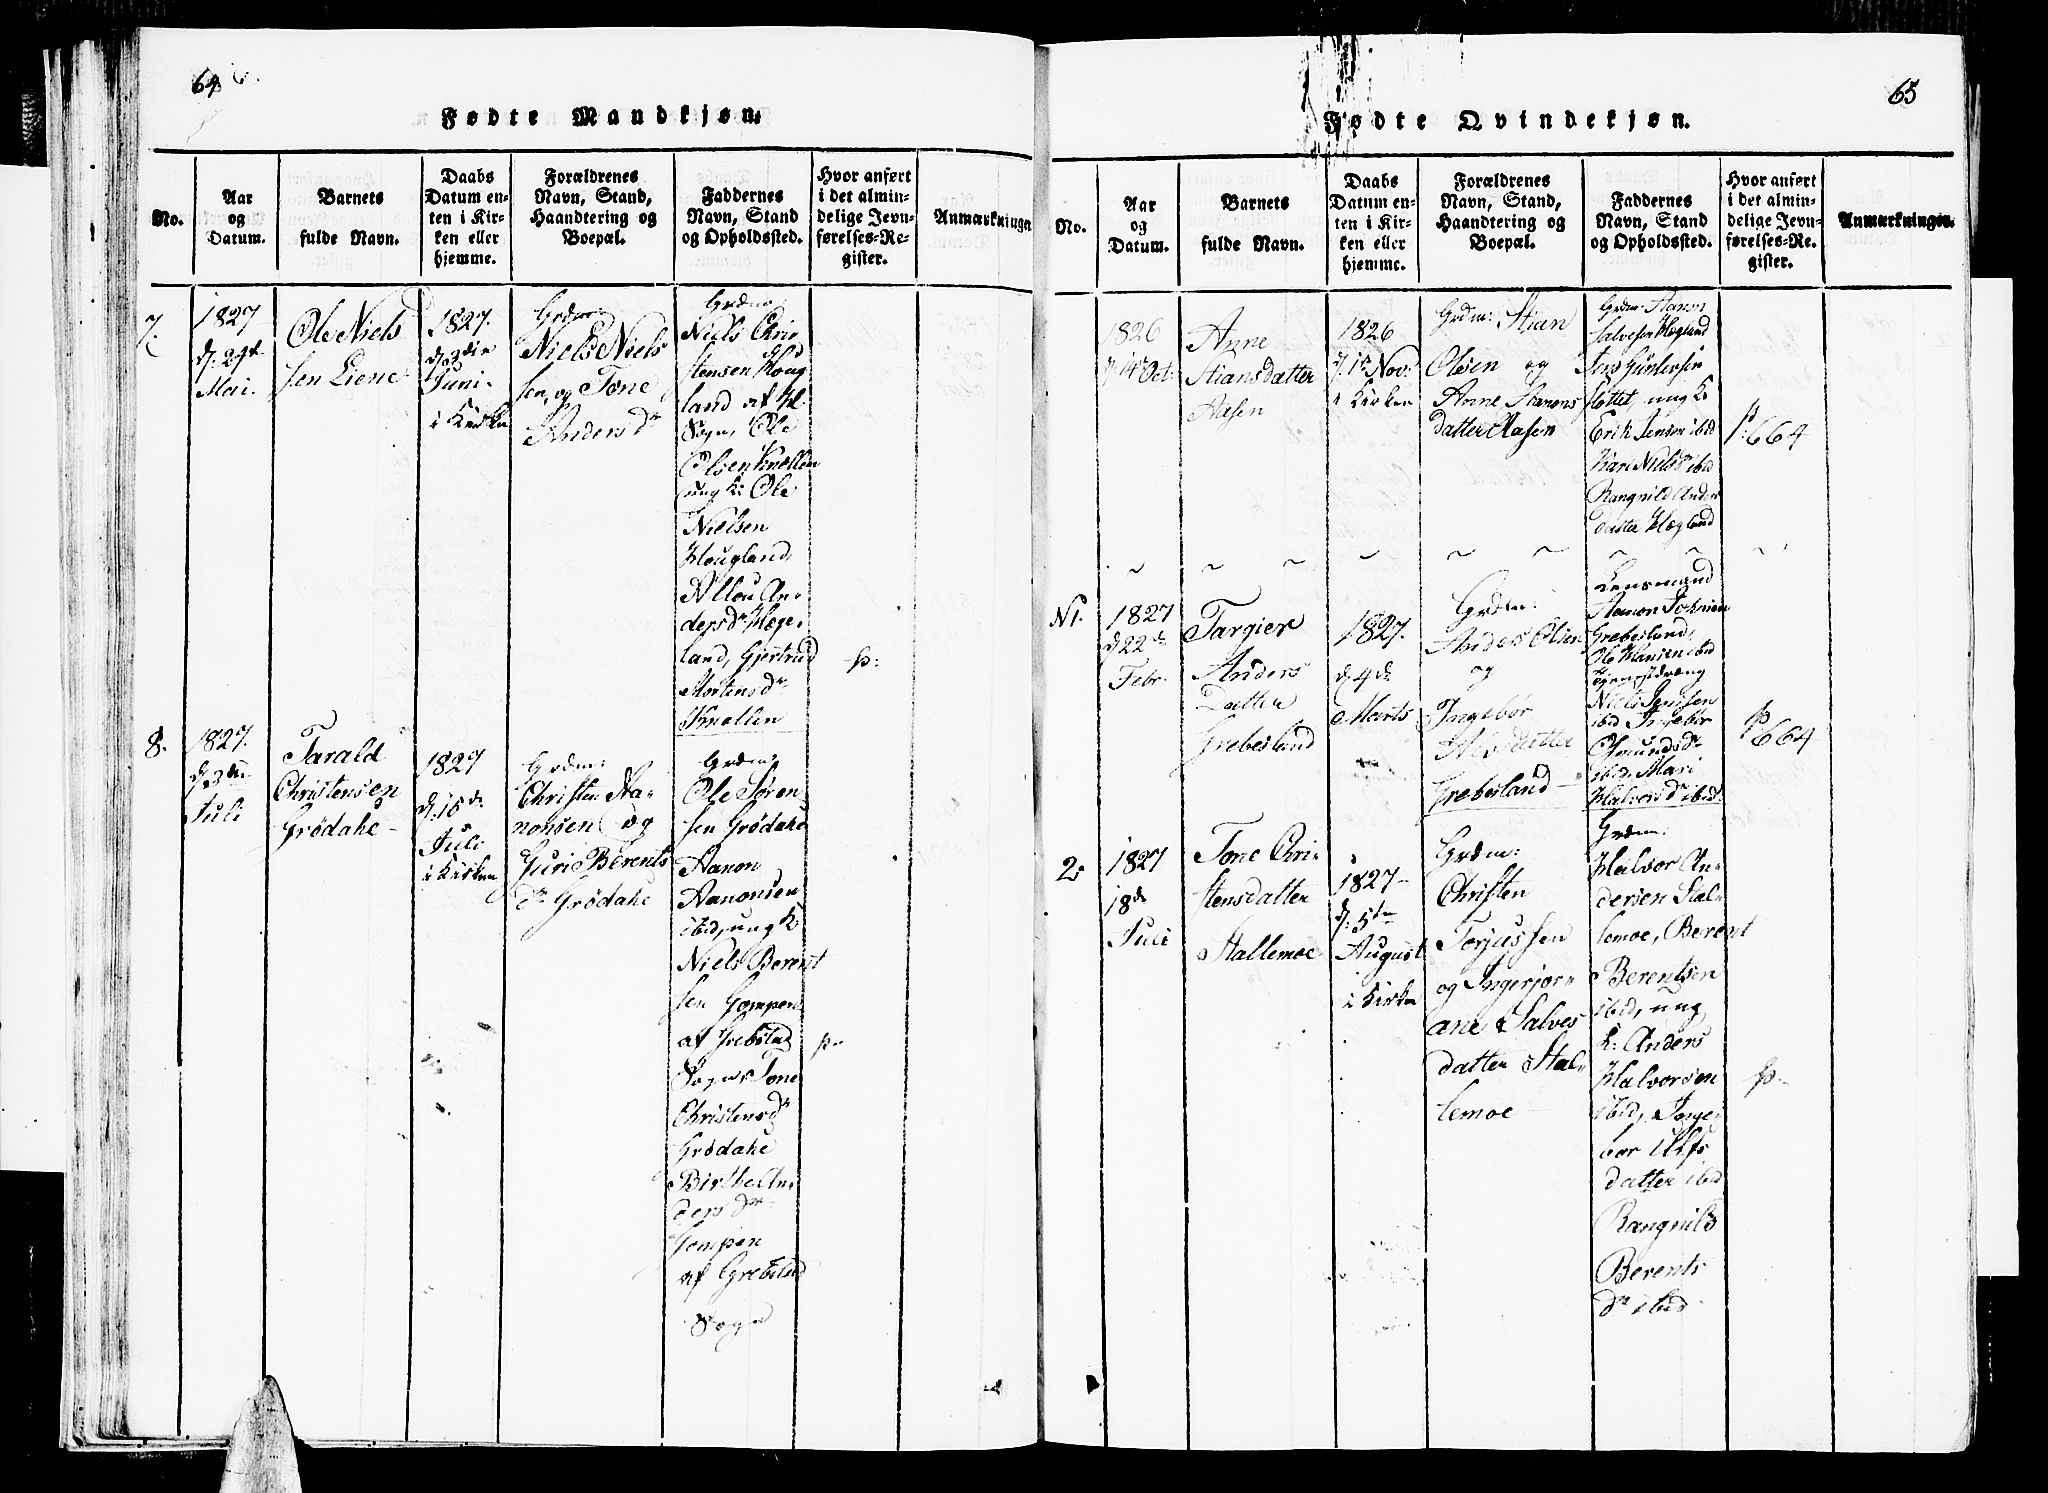 64
Fødte Mandkjøn.
No.
Aar
og
Datum.
Barnets
fulde Navn.
Daabs
Datum en-
ten i Kir-
ken eller
hjemme.
Forældrenes
Navn, Stand,
Haandtering og
Boepæl.
Faddernes
Navn, Stand
og Opholdssted.
Hvor anført
i det almin-
delige Jevn-
førelses-Re-
gister.
Anmærkninger
7.
1827
d. 29d
Mai.
Ole Niels
sen Liene
1827.
d. 3die
Juni
i Kirken
Grdm:
Niels Niels
sen, og Tone
Anders dr
Grdm:
Niels Chri
stensen Houg
land af Hl.
Sogn, Ole
Olsen Knallen
ung K: Ole
Nielsen
Hougland,
An-
dersdr Hege-
land, Gjertrud
Mortensdr
Knallen
p:
8.
1827.
d. 3die
Juli
Tarald
Christensen
Grödahe
1827
d. 15de
Juli
i Kirken
Grdm:
Christen Aa-
nonsen og
Guri Berents
dr Grödahe
Grdm:
Ole Søren
sen Grödahe
Aanon
Aanonsen
ibid, ung K:
Niels Berent
sen Gompen
af Grebstad
Sogn, Tone
Christensdr
Grödahe
Birthe An-
dersdr
Gompen
af Grebstad
Sogn
p:
65
Fødte Qvindekjøn.
No.
Aar
og
Datum.
Barnets
fulde Navn.
Daabs
Datum en-
ten i Kir-
ken eller
hjemme.
Forældrenes
Navn, Stand,
Haandtering og
Boepæl.
Faddernes
Navn, Stand
og Opholdssted.
Hvor anført
i det almin-
delige Jevn-
førelses-Re-
gister.
Anmærkninger.
1826
d. 14d Oct:
Anne
Stiansdatter
Aasen
1826
d. 1te Nov:
i Kirken
Grdm: Stian
Olsen og
Anne Aanons
datter Aasen
Grdm: Aanon
Salvesen Hægland
Jens Guntersen
Slottet, ung K:
Erik Jensen ibid
Kari Nielsdr ibid
Rangnild Anders
datter Hægland
p: 664
N 1.
1827
d. 22de
Febr.
Targier
Anders
Datter
Grebesland
1827.
d. 4de
Marts
Grdm:
Anders Olsen
og
Ingebør
datter
Grebesland
Lensmand
Aanon
Grebesland,
Ole Hansen ibid
Niels Jensen
ibid, Ingebør
Omundsdr
ibid, Mari
Halvorsdr ibid
p 664
2.
1827
18de
Juli
Tone Chri-
stensdatter
Stallemoe
1827
d. 5te
August
i Kirken
Grdm:
Christen
Torjussen
og Ingerjor-
ane Salves
datter Stal-
lemoe
Grdm:
Halvor An-
dersen Stal-
lemoe, Berent
Berentsen
ibid, ung
K: Anders
Halvorsen
ibid, Inge-
bor Ulfs
datter ibid
Rangnild
Berents
dr ibid
p: